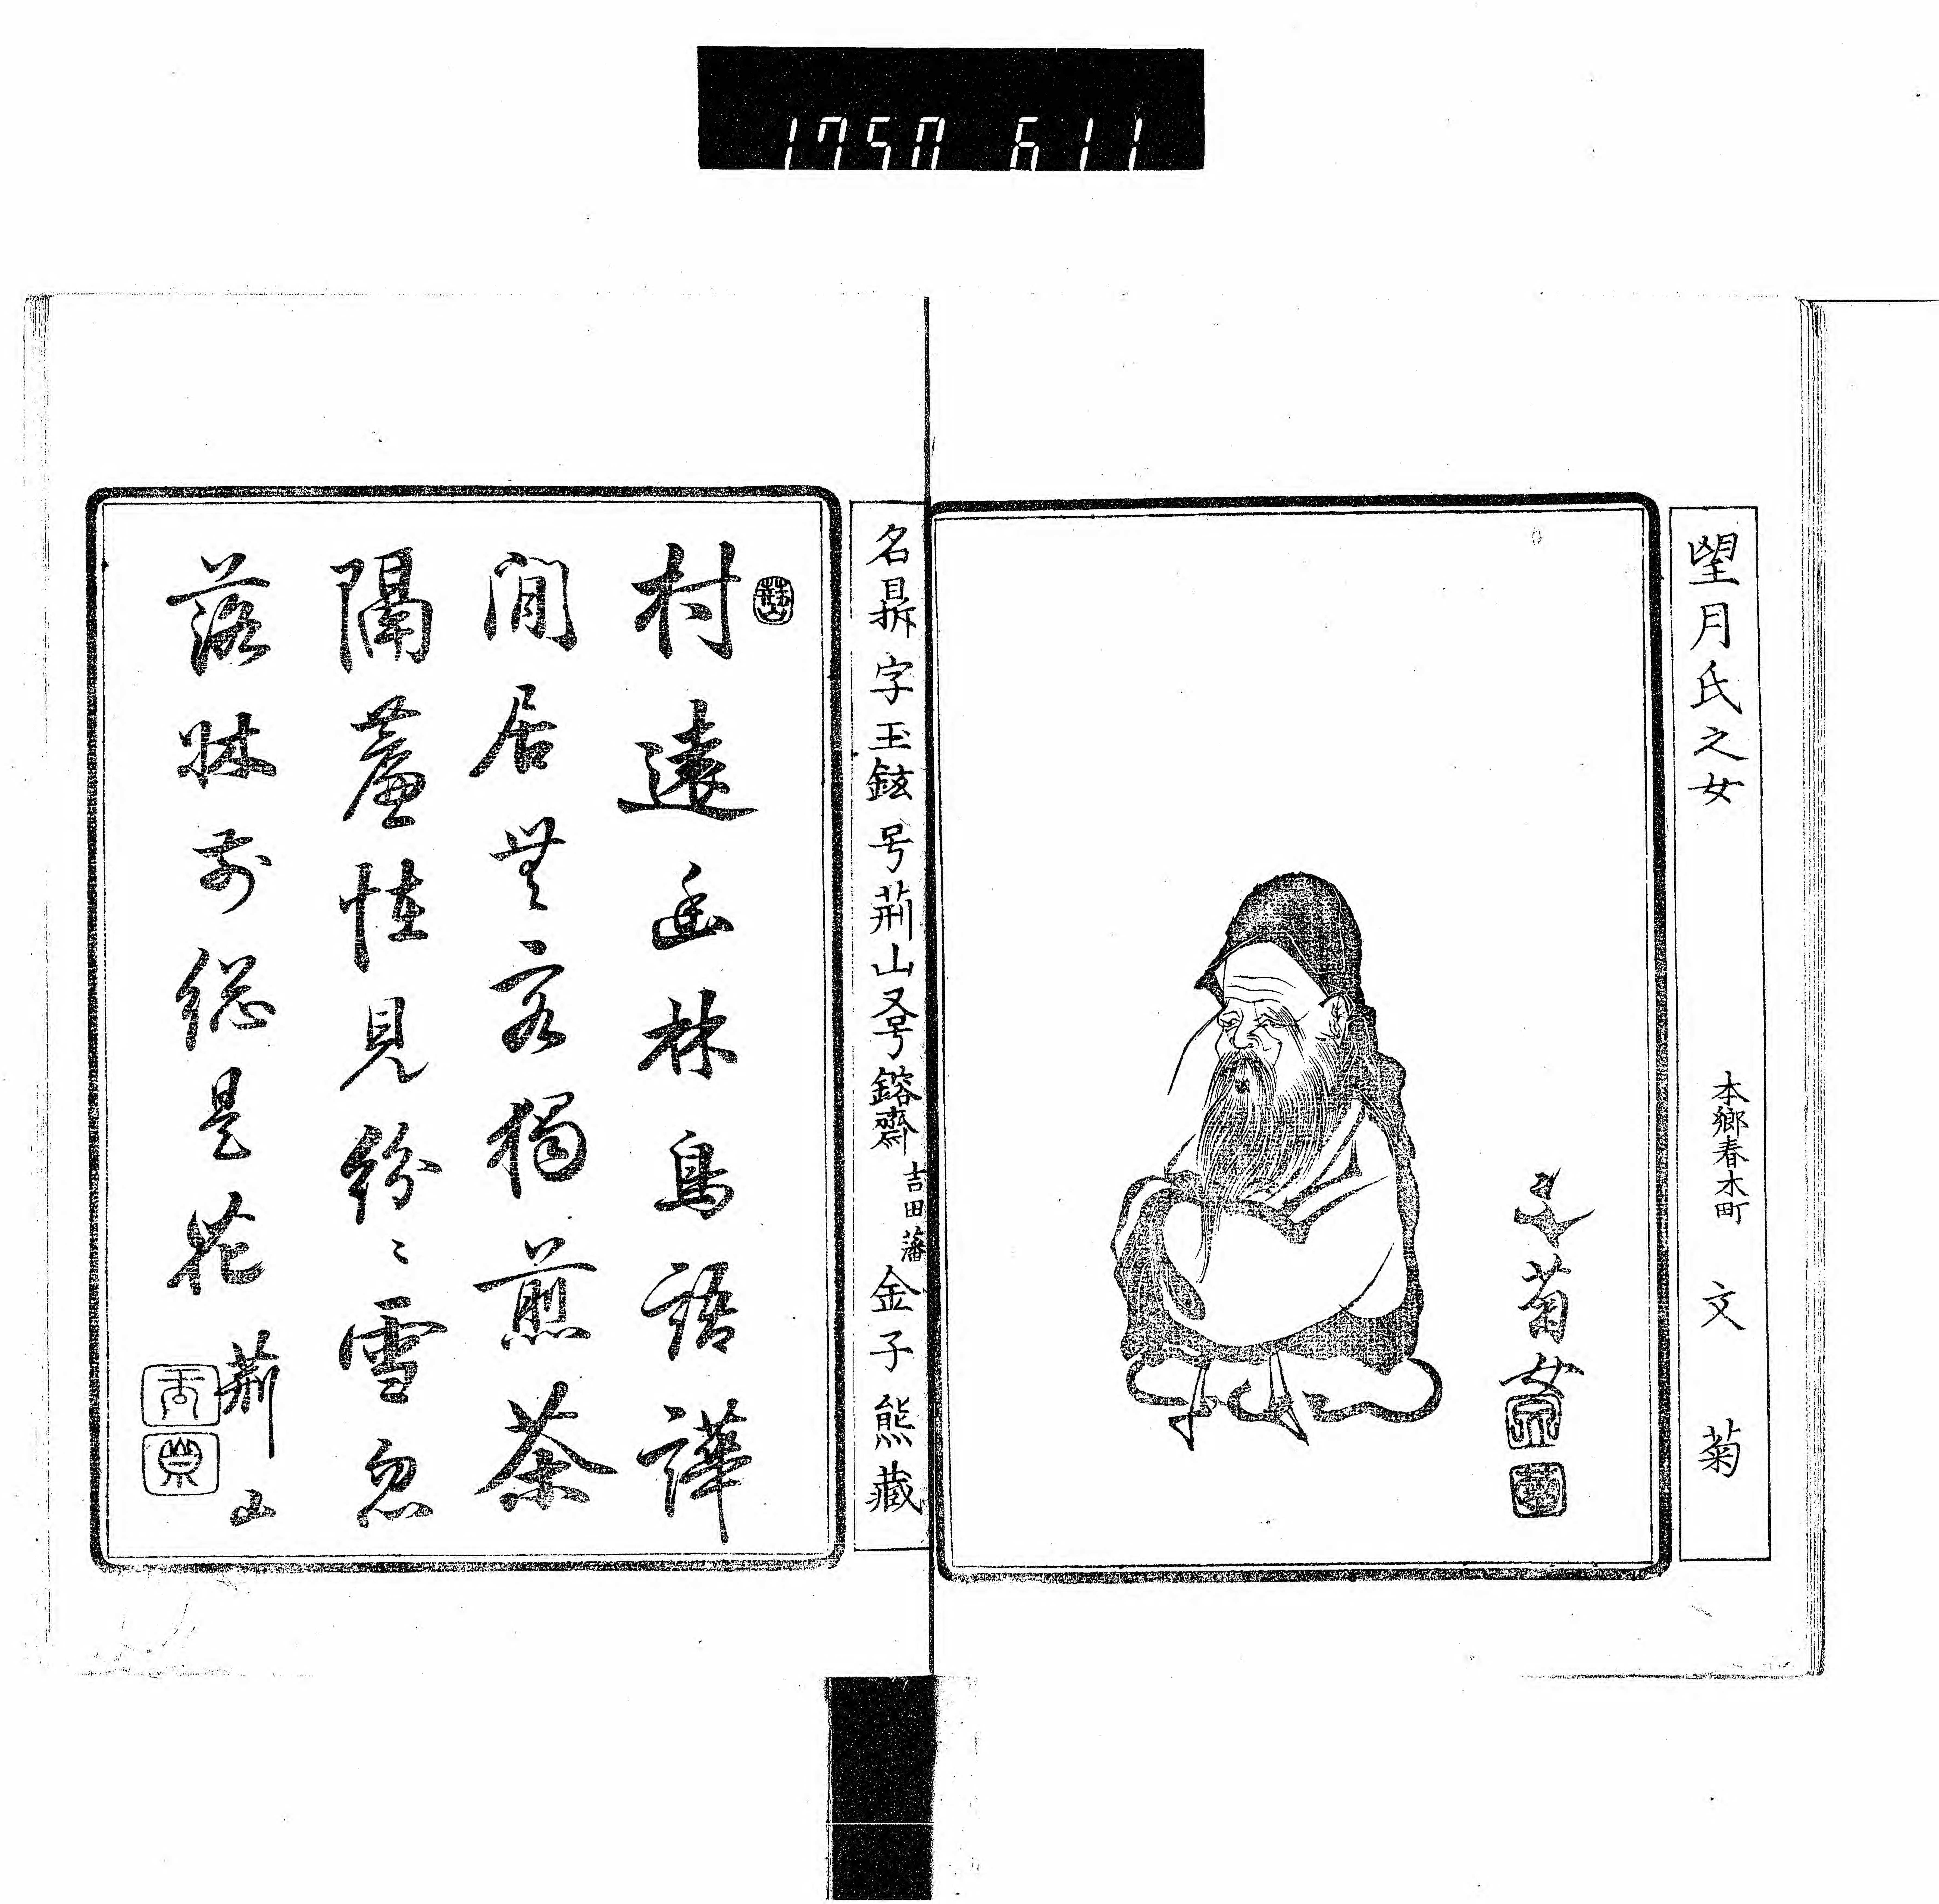 1750 611
望月氏之女 本郷春木町 文菊
文菊女
名鼎 字玉鉉 号荊山又号鎔齋 吉田藩 金子熊藏
荊山
村遠幽林鳥語譁
閒居無客獨煎茶
隔簾怪見紛〻雪忽
落牀前總是花 荊山